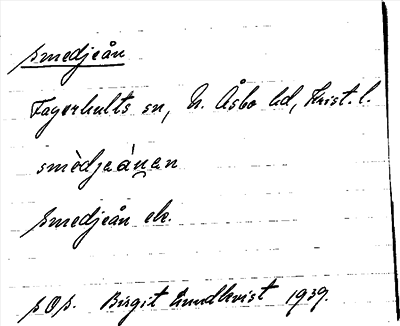 Smedjeån
Fagerhults sn, N. Åsbo hd, Krist. l.
smèdjeánan
Smedjeån ek.
sOs. Birgit Lundkvist 1939.